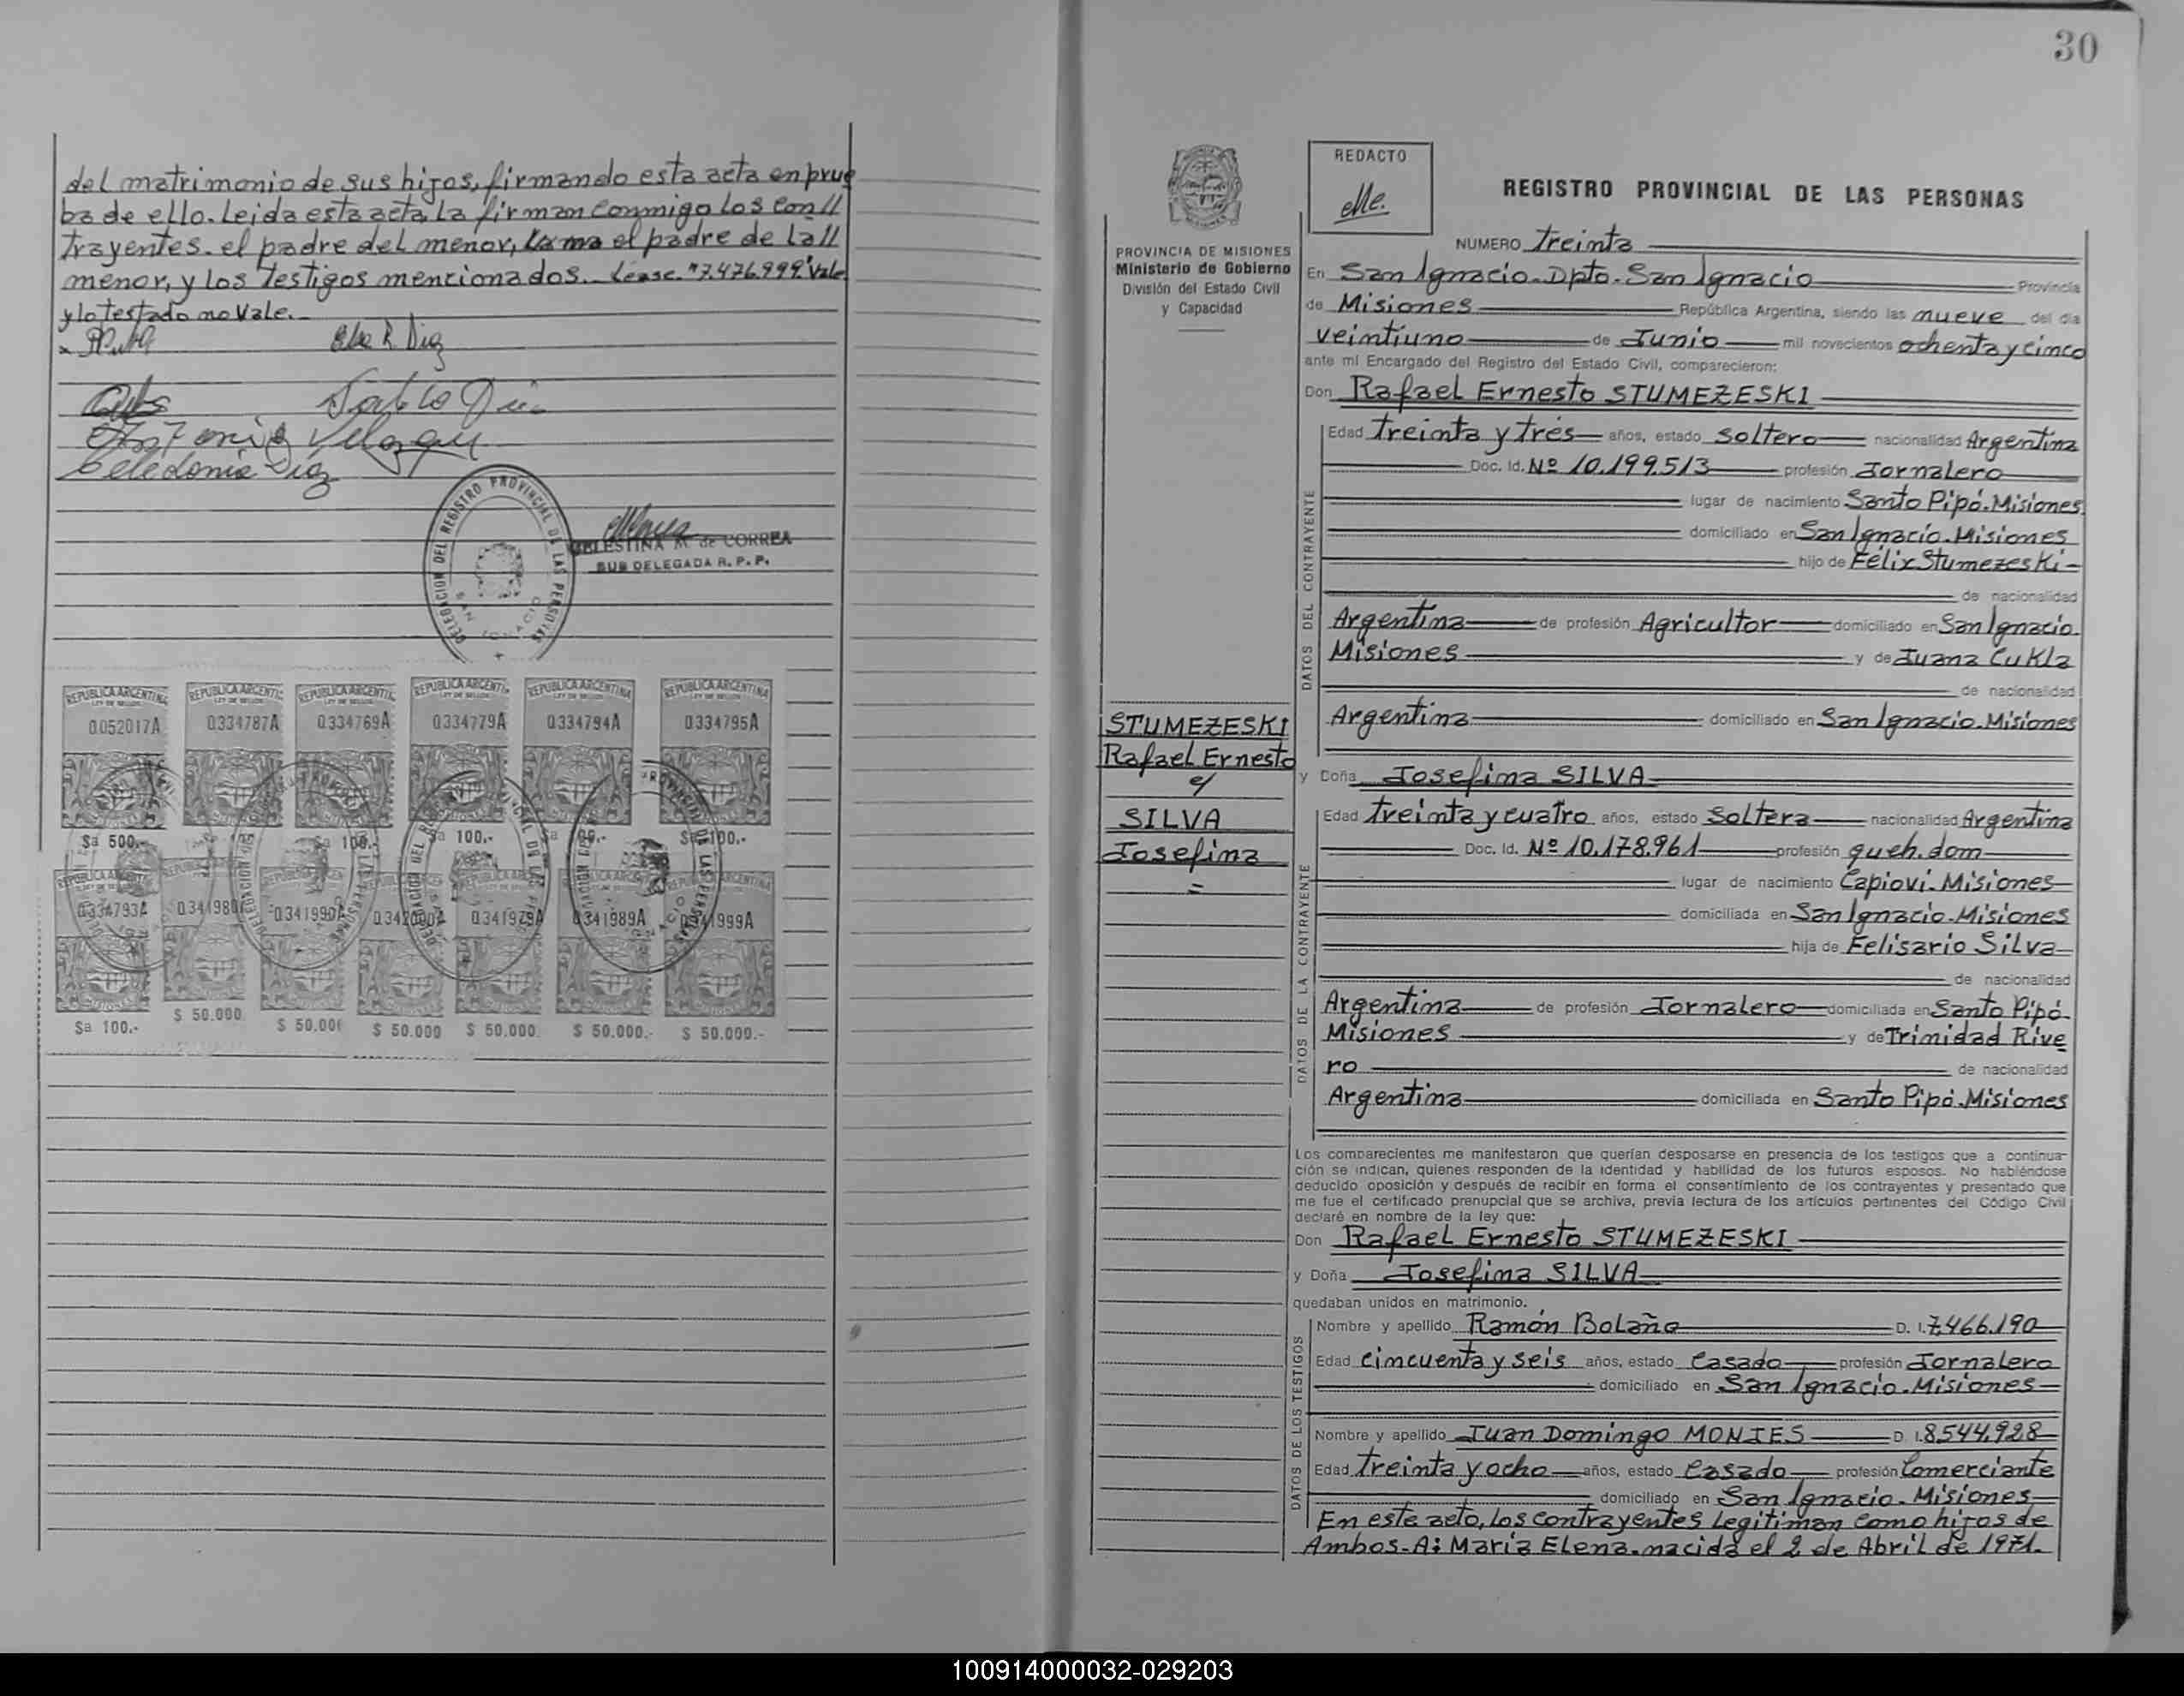 del matrimonio de sus hijos, firmando esta acta en prue
ba de ello. Leida esta acta, La firman conmigo Los Con//
trayentes. el padre del menor, el padre de la//
menor, y Los Testigos mencionados. Lease. "7.476.999" Vale
y lo testado no Vale.
Elsa R. Diaz
Celedonia Diaz
DELEGACION DEL REGISTRO PROVINCIAL DE LAS PERSONAS
SAN IGNACIO
CELESTINA M. de CORREA
SUB DELEGADA R. P. P.
REPUBLICA ARGENTINA
LEY DE SELLOS
0.052017A
0.334787A
0.334769A
0.334779A
0.334794A
0.334795A
$a 500.-
$a 100.-
$a 100.-
$a 100.-
0.334793A
0.341990A
0.341979A
0.341989A
$a 100.-
$ 50.000
$ 50.000
$ 50.000.
$ 50.000.-
$ 50.000.-
30
REDACTO
REGISTRO PROVINCIAL DE LAS PERSONAS
PROVINCIA DE MISIONES
Ministerio de Gobierno
División del Estado Civil
y Capacidad
STUMEZESKI
Rafael Ernesto
c/
SILVA
Josefina
=
NUMERO Treinta
En San Ignacio-Dpto. San Ignacio Provincia
de Misiones República Argentina, siendo las nueve del día
veintiuno de Junio mil novecientos ochenta y cinco
ante mí Encargado del Registro del Estado Civil, comparecieron:
Don Rafael Ernesto STUMEZESKI
DATOS DEL CONTRAYENTE
Edad Treinta y tres años, estado Soltero nacionalidad Argentina
Doc. Id. Nº 10.199.513 profesión Jornalero
lugar de nacimiento Santo Pipó-Misiones
domiciliado en San Ignacio-Misiones
hijo de Félix Stumezeski-
de nacionalidad
Argentina de profesión Agricultor domiciliado en San Ignacio.
Misiones y de Juana Cukla
de nacionalidad
Argentina domiciliado en San Ignacio-Misiones
y Doña Josefina SILVA
DATOS DE LA CONTRAYENTE
Edad Treinta y cuatro años, estado Soltera nacionalidad Argentina
Doc. Id. Nº 10.178.961 profesión queh. dom
lugar de nacimiento Capiovi-Misiones
domiciliada en San Ignacio-Misiones
hija de Felisario Silva
de nacionalidad
Argentina de profesión Jornalero domiciliada en Santo Pipó-
Misiones y de Trinidad Rive
ro de nacionalidad
Argentina domiciliada en Santo Pipó-Misiones
Los comparecientes me manifestaron que querían desposarse en presencia de los testigos que a continua-
ción se indican, quienes responden de la identidad y habilidad de los futuros esposos. No habiéndose
deducido oposición y después de recibir en forma el consentimiento de los contrayentes y presentado que
me fue el certificado prenupcial que se archiva, previa lectura de los artículos pertinentes del Código Civil
declaré en nombre de la ley que:
Don Rafael Ernesto STUMEZESKI
y Doña Josefina SILVA
quedaban unidos en matrimonio.
DATOS DE LOS TESTIGOS
Nombre y apellido Ramón Bolaño D. I. 7.466.190
Edad cincuenta y seis años, estado Casado profesión Jornalero
domiciliado en San Ignacio-Misiones
Nombre y apellido Juan Domingo MONJES D. I. 8.544.928
Edad Treinta y ocho años, estado Casado profesión Comerciante
domiciliado en San Ignacio-Misiones
En este acto, Los contrayentes Legitiman como hijos de
Ambos-A: María Elena-nacida el 2 de Abril de 1971.
100914000032-029203